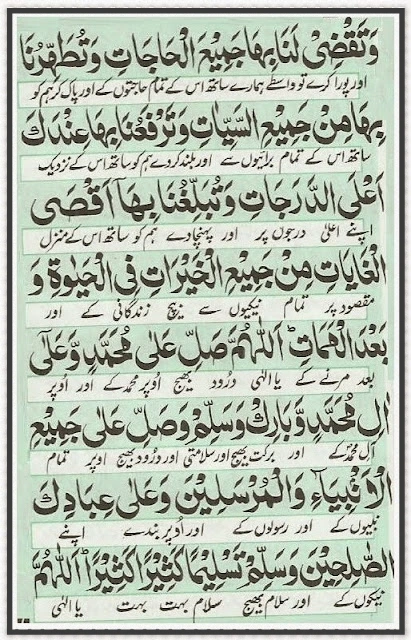 وَتَقْضِىْ لَنَا بِهَا جَمِيْعَ الْحَاجَاتِ وَتُطَهِّرُنَا
اور پورا کرے تو واسطے ہمارے ساتھ اس کے تمام حاجتوں کے اور پاک کر ہم کو
بِهَا مِنْ جَمِيْعِ السَّيِّاٰتِ وَتَرْفَعُنَا بِهَا عِنْدَكَ
ساتھ اس کے تمام برائیوں سے اور بلند کردے ہم کو ساتھ اس کے نزدیک
اَعْلَى الدَّرَجَاتِ وَتُبَلِّغُنَا بِهَا اَقْصَى
اپنے اعلیٰ درجوں پر اور پہنچا دے ہم کو ساتھ اس کے منزل
الْغَايَاتِ مِنْ جَمِيْعِ الْخَيْرَاتِ فِى الْحَيٰوةِ وَ
مقصود پر تمام نیکیوں سے بیچ زندگانی کے اور
بَعْدَ الْمَمَاتِ ؕ اَللّٰهُمَّ صَلِّ عَلٰى مُحَمَّدٍ وَّعَلٰٓى
بعد مرنے کے یا الٰہی درود بھیج اوپر محمد کے اور اوپر
اٰلِ مُحَمَّدٍ وَّبَارِكْ وَسَلِّمْ وَصَلِّ عَلٰى جَمِيْعِ
آل محمد کے اور برکت بھیج اور سلامتی اور درود بھیج اوپر تمام
الْاَنْبِيَآءِ وَالْمُرْسَلِيْنَ وَعَلٰى عِبَادِكَ
نبیوں کے اور رسولوں کے اور اوپر بندے اپنے
الصّٰلِحِيْنَ وَسَلِّمْ تَسْلِيْمًا كَثِيْرًا كَثِيْرًا ؕ اَللّٰهُمَّ
نیکوں کے اور سلام بھیج سلام بہت بہت یا الٰہی